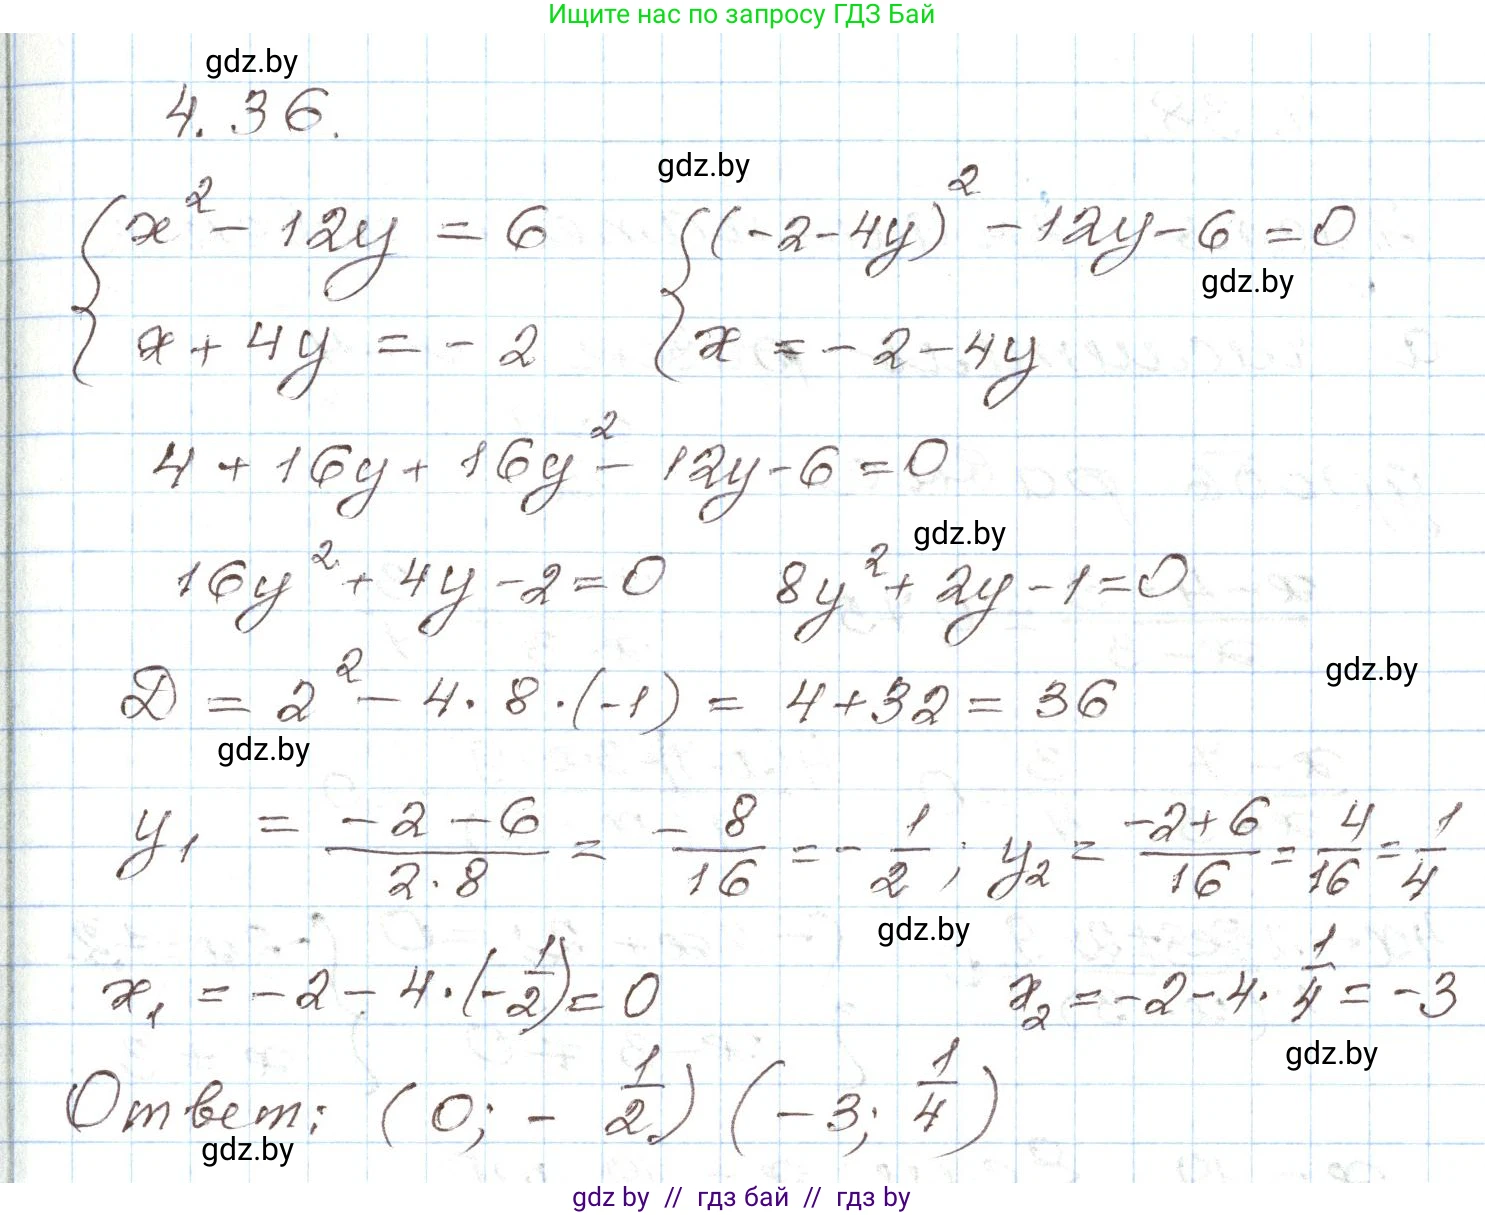 Ищите нас по запросу ГДЗ Бай
gdz.by
4.36.
gdz.by
{ x² - 12y = 6    { (-2-4y)² - 12y - 6 = 0
gdz.by
x + 4y = -2    x = -2-4y
4 + 16y + 16y² - 12y - 6 = 0
gdz.by
16y² + 4y - 2 = 0    8y² + 2y - 1 = 0
gdz.by
D = 2² - 4 · 8 · (-1) = 4 + 32 = 36
gdz.by
y₁ = (-2-6)/(2·8) = -8/16 = -1/2 ; y₂ = (-2+6)/16 = 4/16 = 1/4
gdz.by
x₁ = -2 - 4 · (-1/2) = 0    x₂ = -2 - 4 · 1/4 = -3
gdz.by
Ответ: (0; -1/2) (-3; 1/4)
gdz.by
gdz by // гдз бай // гдз by